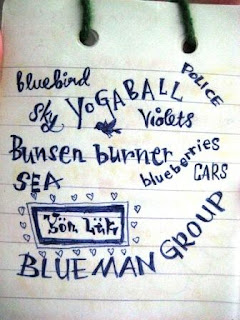 bluebird
POLICE
sky YOGABALL
Violets
Bunsen burner
blueberries
SEA
CARS
BLUE MAN GROUP